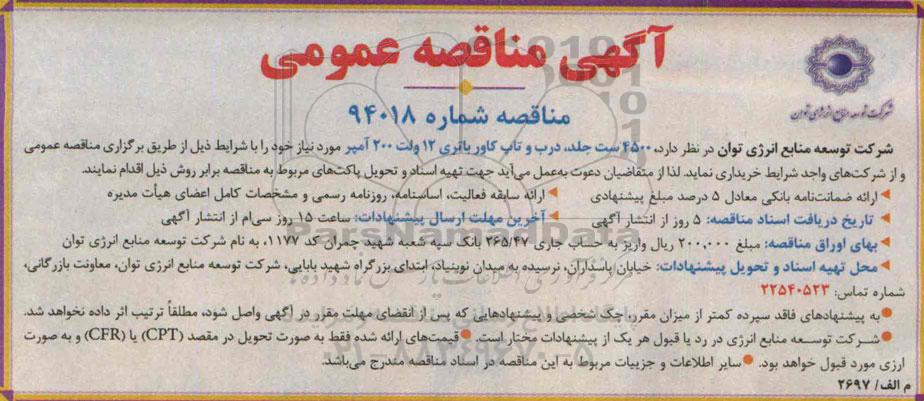 آگهی مناقصه عمومی
شرکت توسعه منابع انرژی توان
مناقصه شماره ۹۴۰۱۸
شرکت توسعه منابع انرژی توان در نظر دارد، ۴۵۰۰ ست جلد، درب و تاپ کاور باتری ۱۲ ولت ۲۰۰ آمپر مورد نیاز خود را با شرایط ذیل از طریق برگزاری مناقصه عمومی
و از شرکت‌های واجد شرایط خریداری نماید. لذا از متقاضیان دعوت به‌عمل می‌آید جهت تهیه اسناد و تحویل پاکت‌های مربوط به مناقصه برابر روش ذیل اقدام نمایند.
ارائه ضمانت‌نامه بانکی معادل ۵ درصد مبلغ پیشنهادی ارائه سابقه فعالیت، اساسنامه، روزنامه رسمی و مشخصات کامل اعضای هیأت مدیره
تاریخ دریافت اسناد مناقصه: ۵ روز از انتشار آگهی آخرین مهلت ارسال پیشنهادات: ساعت ۱۵ روز سی‌ام از انتشار آگهی
بهای اوراق مناقصه: مبلغ ۲۰۰,۰۰۰ ریال واریز به حساب جاری ۲۶۵/۴۷ بانک سپه شعبه شهید چمران کد ۱۱۷۷، به نام شرکت توسعه منابع انرژی توان
محل تهیه اسناد و تحویل پیشنهادات: خیابان پاسداران، نرسیده به میدان نوبنیاد، ابتدای بزرگراه شهید بابایی، شرکت توسعه منابع انرژی توان، معاونت بازرگانی،
شماره تماس: ۲۲۵۴۰۵۲۳
به پیشنهادهای فاقد سپرده کمتر از میزان مقرر، چک شخصی و پیشنهادهایی که پس از انقضای مهلت مقرر در آگهی واصل شود، مطلقاً ترتیب اثر داده نخواهد شد.
شرکت توسعه منابع انرژی در رد یا قبول هر یک از پیشنهادات مختار است. قیمت‌های ارائه شده فقط به صورت تحویل در مقصد (CPT) یا (CFR) و به صورت
ارزی مورد قبول خواهد بود. سایر اطلاعات و جزییات مربوط به این مناقصه در اسناد مناقصه مندرج می‌باشد.
م الف/ ۲۶۹۷
ParsNamadData